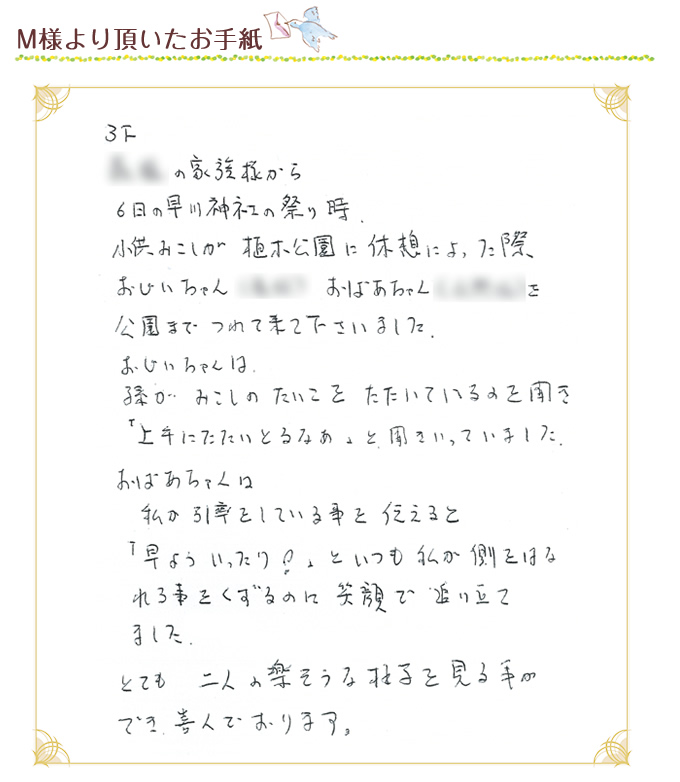 M様より頂いたお手紙
3F
の家族様から
6日の早川神社の祭り時、
小供みこしが 植木公園に休憩によった際
おじいちゃん おばあちゃん を
公園まで つれて来て下さいました。
おじいちゃんは、
孫が みこしの たいこを たたいているのを聞き
「上手にたたいとるなあ」と、聞きいっていました。
おばあちゃんは
私が引率をしている事を伝えると
「早よう いったり!」といつも私が側をはな
れる事をぐずるのに 笑顔で 追い立て
ました。
とても 二人の楽そうな様子を見る事が
でき、喜んでおります。